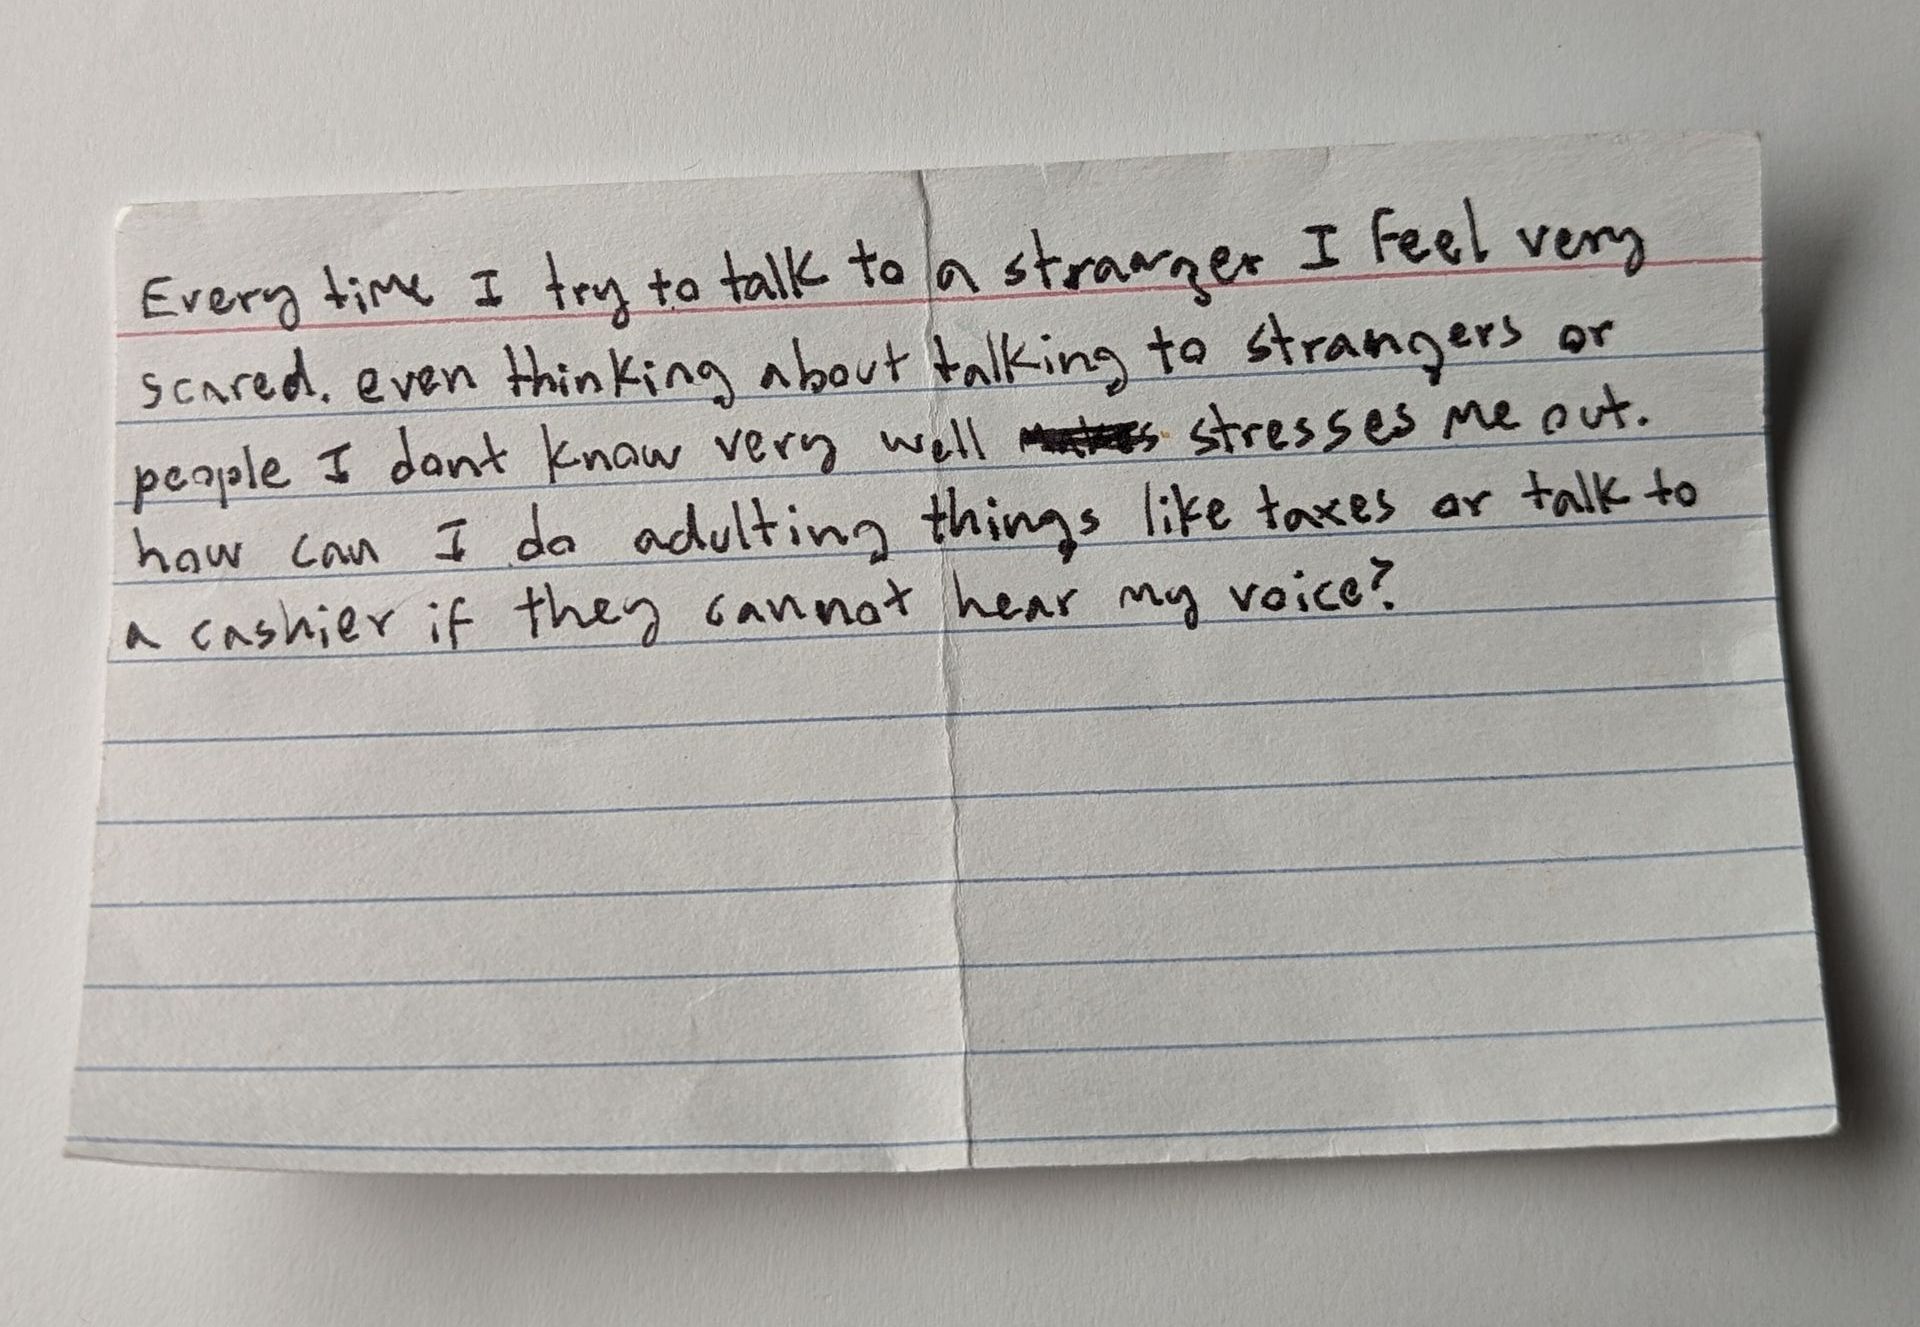 Every time I try to talk to a stranger I feel very
scared. even thinking about talking to strangers or
people I dont know very well stresses me out.
how can I do adulting things like taxes or talk to
a cashier if they cannot hear my voice?